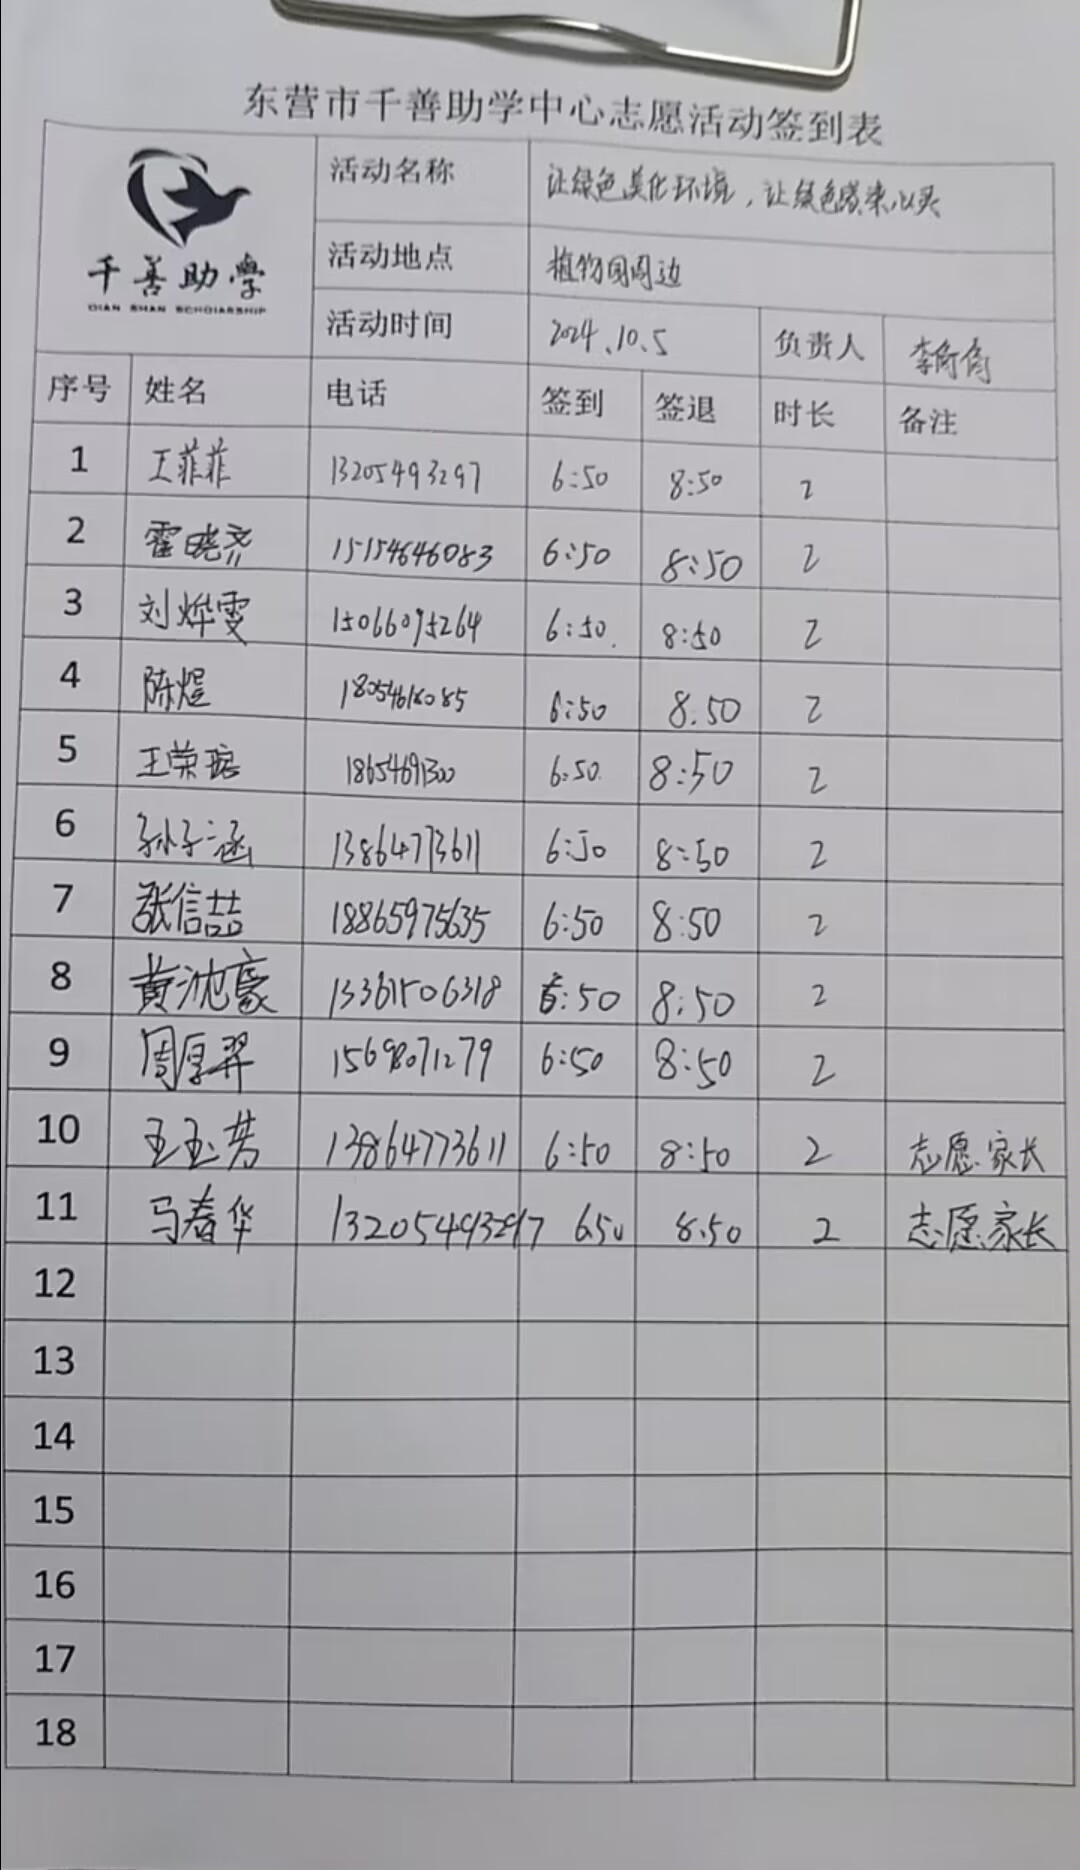 东营市千善助学中心志愿活动签到表
千善助學
QIAN SHAN SCHOLARSHIP
活动名称 让绿色美化环境，让绿色感染心灵
活动地点 植物园周边
活动时间 2024.10.5 负责人 李
序号 姓名 电话 签到 签退 时长 备注
1 王菲菲 13205493297 6:50 8:50 2
2 霍晓齐 15154646083 6:50 8:50 2
3 刘烨雯 15066095264 6:50. 8:50 2
4 陈煜 18054618085 6:50 8.50 2
5 王荣 18654691300 6:50. 8:50 2
6 孙子涵 13864773611 6:50 8:50 2
7 张信喆 18865975635 6:50 8:50 2
8 黄沈豪 13361506318 6:50 8:50 2
9 周厚羿 15698071279 6:50 8:50 2
10 王玉芳 13864773611 6:50 8:50 2 志愿家长
11 马春华 13205493297 6.50 8.50 2 志愿家长
12
13
14
15
16
17
18